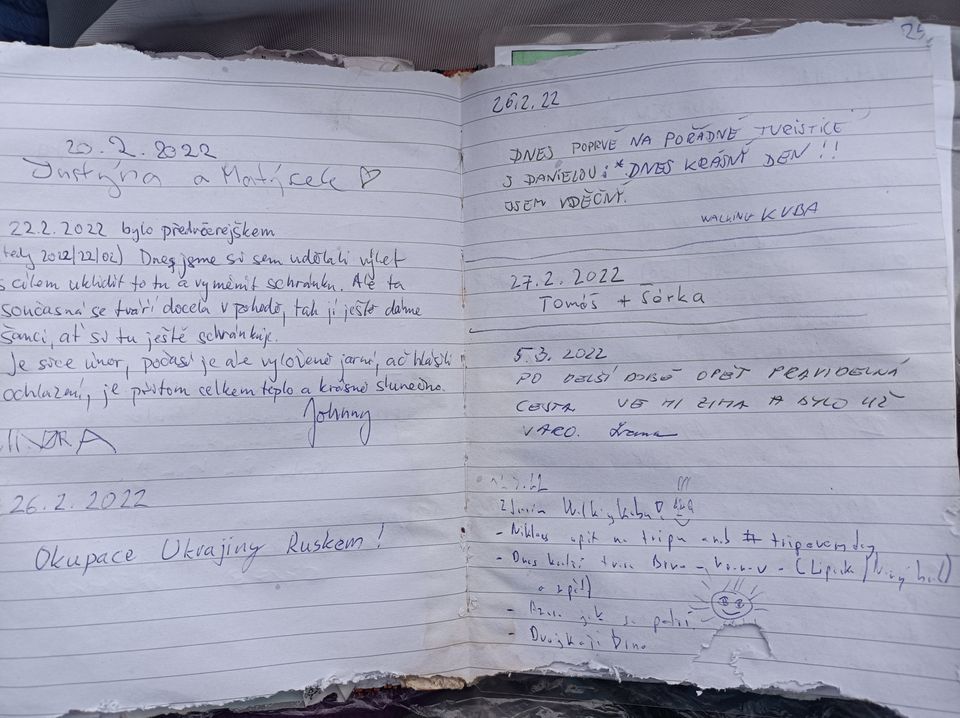 20.2.2022
Justýna a Matýsek ♡
22.2.2022 bylo předvčerejškem
(tedy 2022/22/02) Dnes jsme si sem udělali výlet
s cílem uklidit to tu a vyměnit schránku. Ale ta
současná se tváří docela v pohodě, tak jí ještě dáme
šanci, ať si tu ještě schránkuje.
Je sice únor, počasí je ale vyloženě jarní, ač hlásili
ochlazení, je přitom celkem teplo a krásně slunečno.
Johnny
26.2.2022
Okupace Ukrajiny Ruskem!
25
26.2.22
DNES POPRVÉ NA POŘÁDNÉ TURISTICE
S DANIELOU :* DNES KRÁSNÝ DEN!!
JSEM VDĚČNÝ.
WALKING KUBA
27.2.2022
Tomáš + Šárka
5.3.2022
PO DELŠÍ DOBĚ OPĚT PRAVIDELNÁ
CESTA VE MI ZIMA A BYLO UŽ
- Niklas opět na tripu #tripoverday
- Dnes trasa Brno - - (Lipůvka
a zpět)
- jak se patří
- Brno